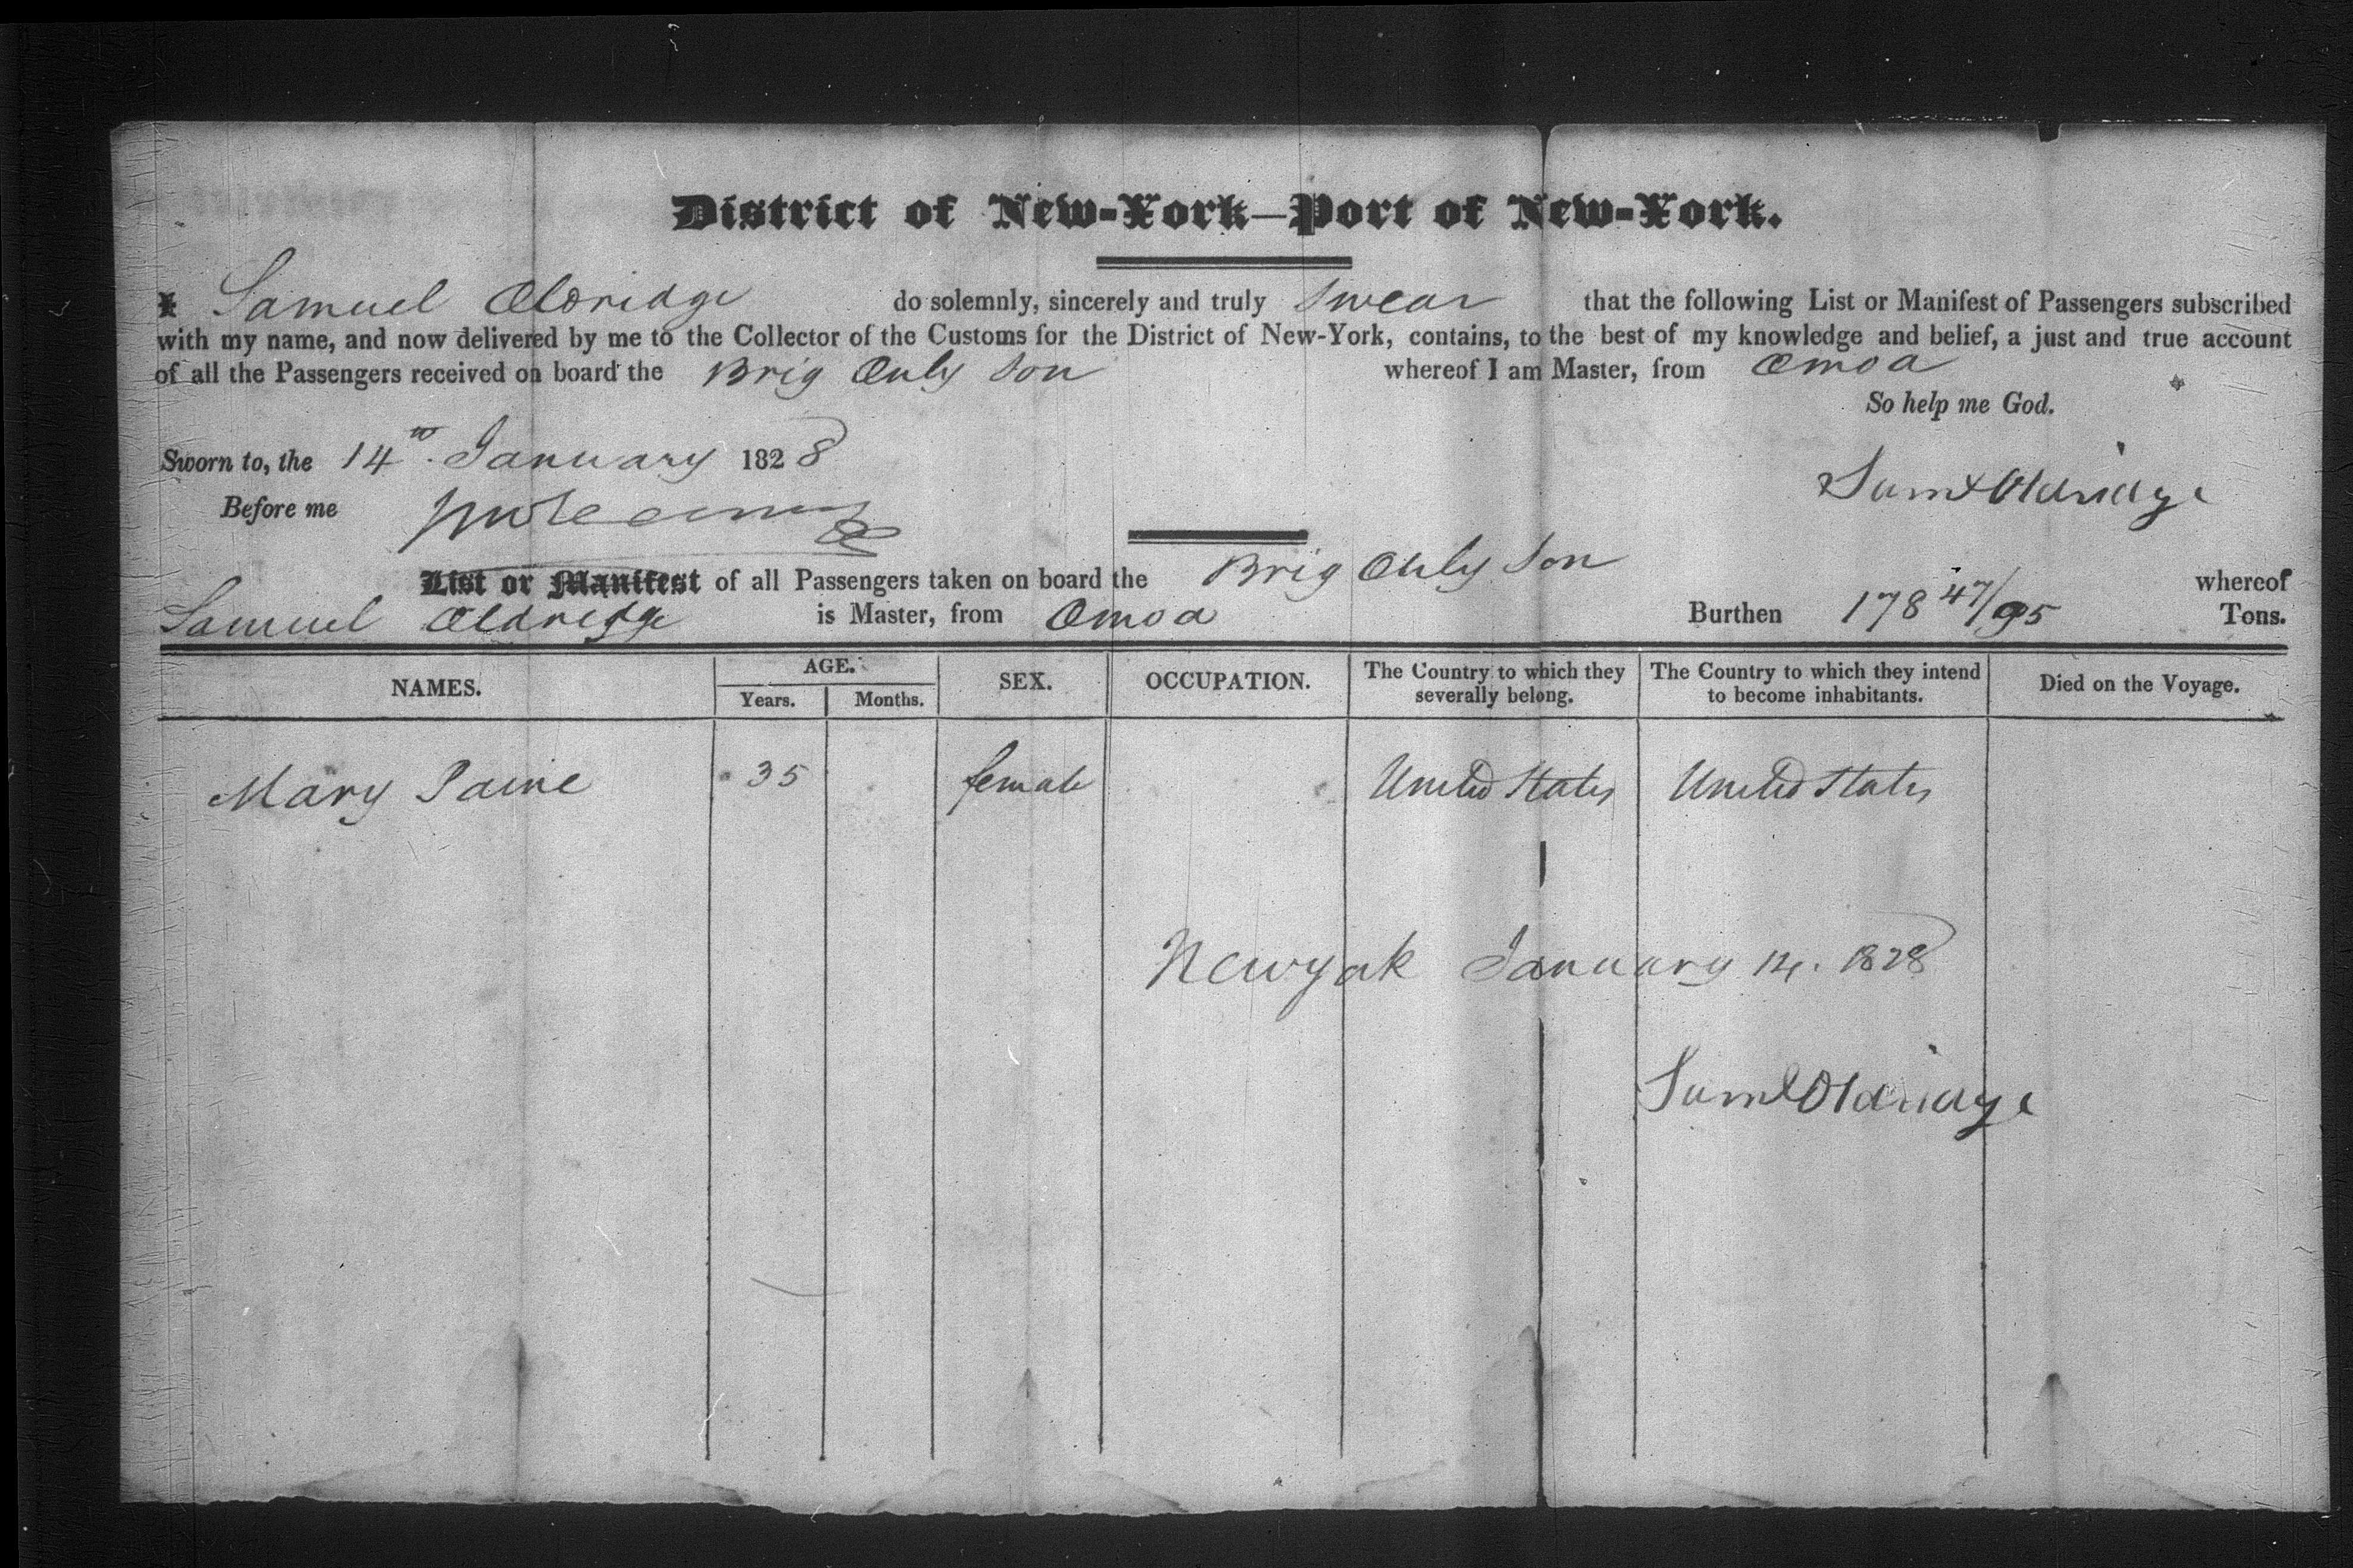 District of New-York—Port of New-York.
I Samuel Oldridge do solemnly, sincerely and truly swear that the following List or Manifest of Passengers subscribed
with my name, and now delivered by me to the Collector of the Customs for the District of New-York, contains, to the best of my knowledge and belief, a just and true account
of all the Passengers received on board the Brig Only Son whereof I am Master, from Omoa
So help me God.
Sworn to, the 14th. January 1828
Saml Oldridge
Before me
List or Manifest of all Passengers taken on board the Brig Only Son whereof
Samuel Oldridge is Master, from Omoa Burthen 178 47/95 Tons.
NAMES. AGE. Years. Months. SEX. OCCUPATION. The Country to which they severally belong. The Country to which they intend to become inhabitants. Died on the Voyage.
Mary Paine 35 female United States United States
Newyork January 14. 1828
Saml Oldridge